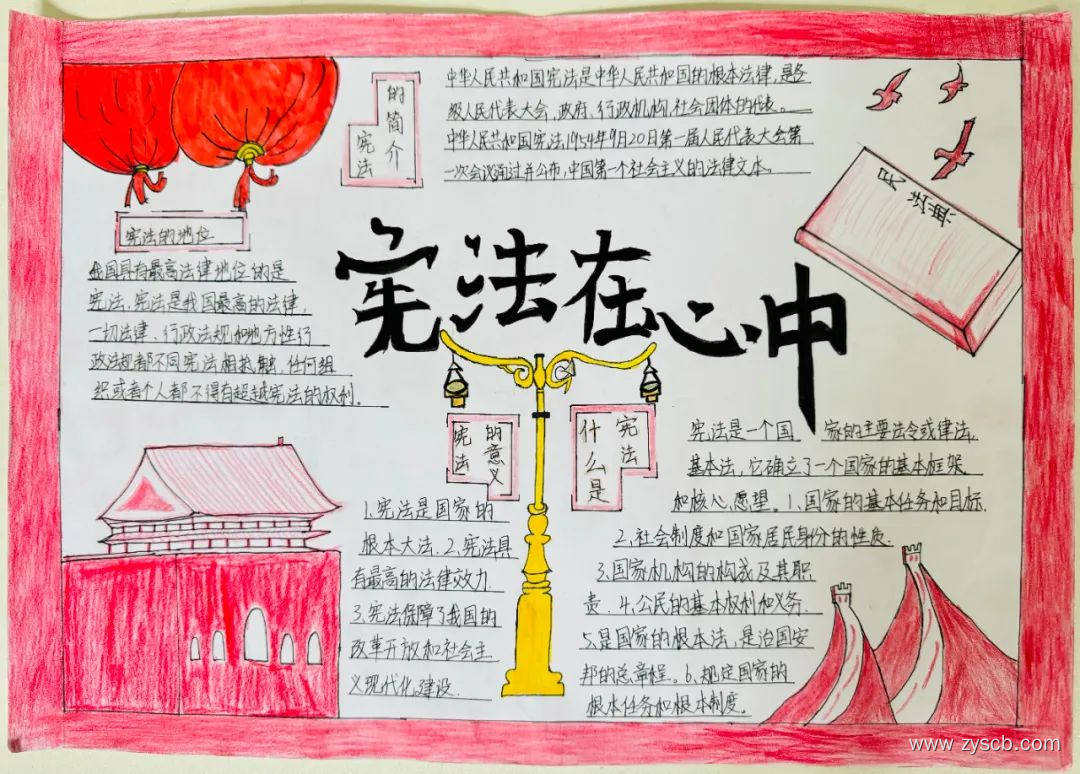 宪法的简介
中华人民共和国宪法是中华人民共和国的根本法律,是各
级人民代表大会,政府、行政机构,社会团体的代表。
中华人民共和国宪法1954年9月20日第一届人民代表大会第
一次会议通过并公布,中国第一个社会主义的法律文本。
民法典
宪法的地位
我国具有最高法律地位的是
宪法,宪法是我国最高的法律,
一切法律、行政法规和地方性行
政法规都不同宪法相抵触,任何组
织或者个人都不得有超越宪法的权利。
宪法在心中
宪法的意义
1.宪法是国家的
根本大法.2.宪法具
有最高的法律效力
3.宪法保障了我国的
改革开放和社会主
义现代化建设.
什么是宪法
宪法是一个国 家的主要法令或律法,
基本法,它确立了一个国家的基本框架
和核心愿望。1、国家的基本任务和目标.
2.社会制度和国家居民身分的性质.
3.国家机构的构成及其职
责.4.公民的基本权利和义务.
5.是国家的根本法,是治国安
邦的总章程。6.规定国家的
根本任务和根本制度。
www.zyscb.com